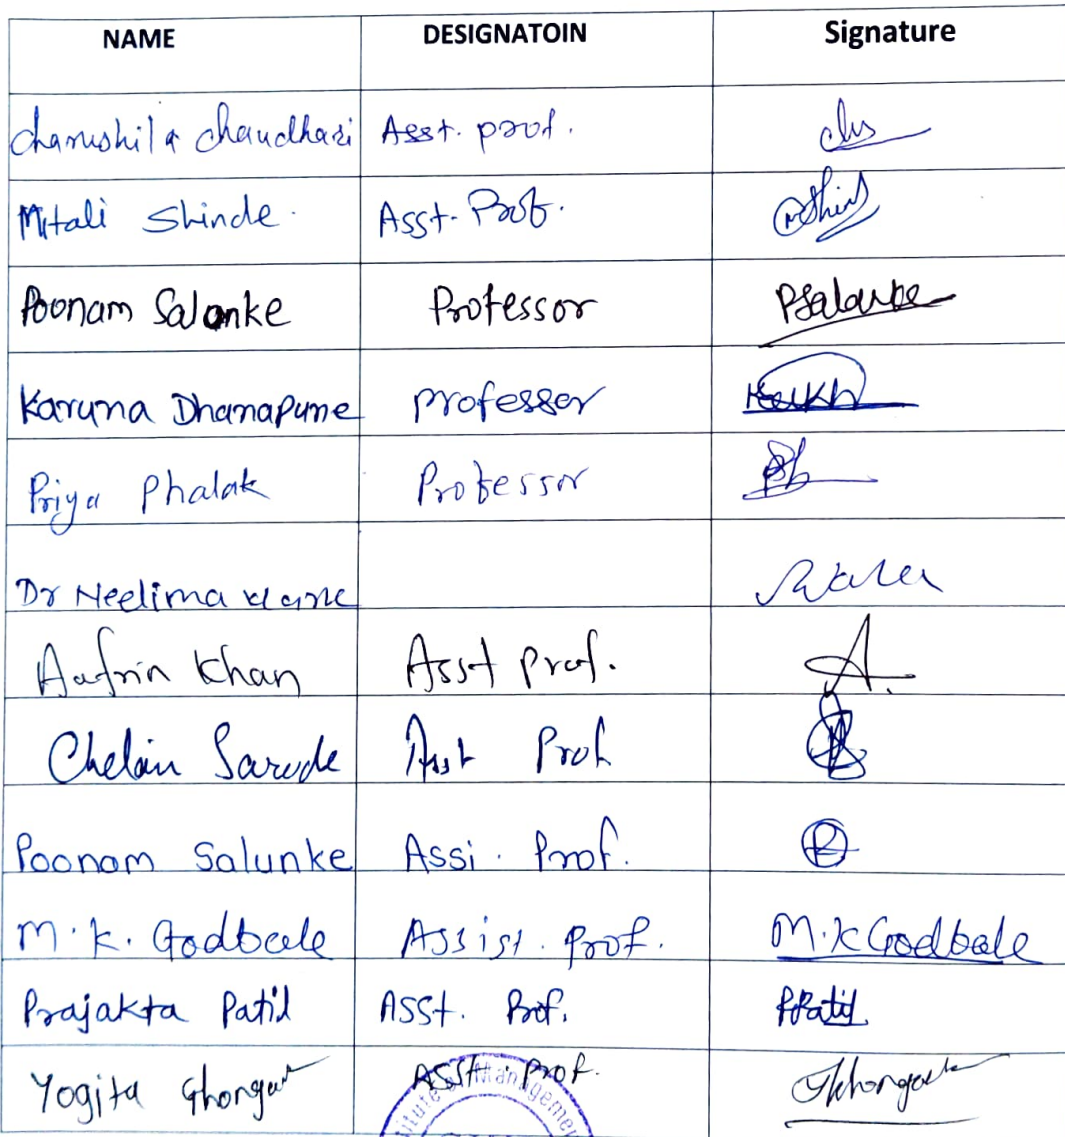 NAME DESIGNATOIN Signature
Charushila Chaudhari Asst. prof.
Mitali Shinde. Asst. Prof.
Poonam Salunke Professor PSalunke
Karuna Dhanapune professor
Priya Phalak Professor
Dr Neelima
Aafrin Khan Asst prof. A.
Sarode Asst Prof
Poonam Salunke Assi. Prof.
M.K. Godbole Assist. Prof. M.K Godbole
Prajakta Patil ASSt. Prof. PPatil
Yogita ASSt. Prof.
itute of Management